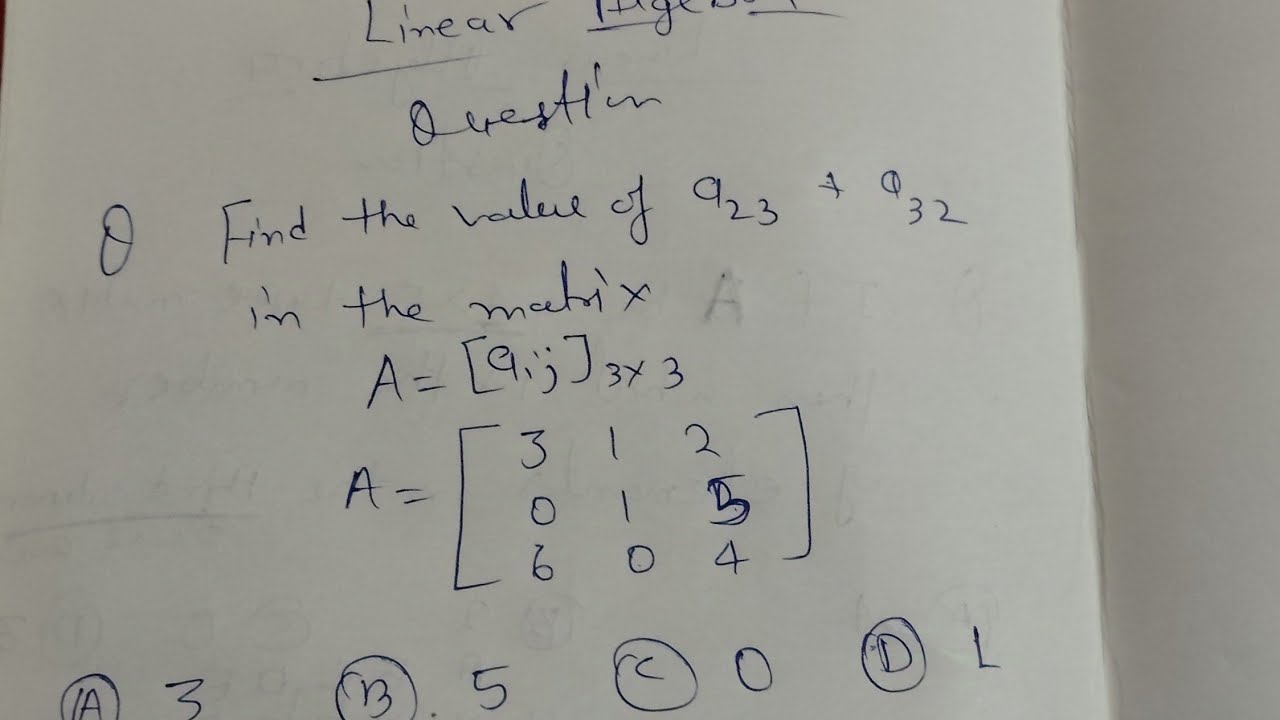 Linear Algebra
Question
Q Find the value of a23 + a32
in the matrix
A = [aij]3x3
A = [ 3 1 2
0 1 5
6 0 4 ]
(A) 3 (B) 5 (C) 0 (D) 1